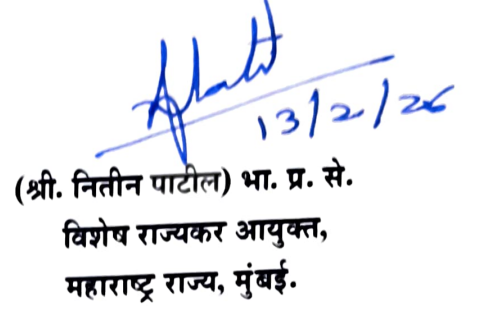 13/2/26
(श्री. नितीन पाटील) भा. प्र. से.
विशेष राज्यकर आयुक्त,
महाराष्ट्र राज्य, मुंबई.